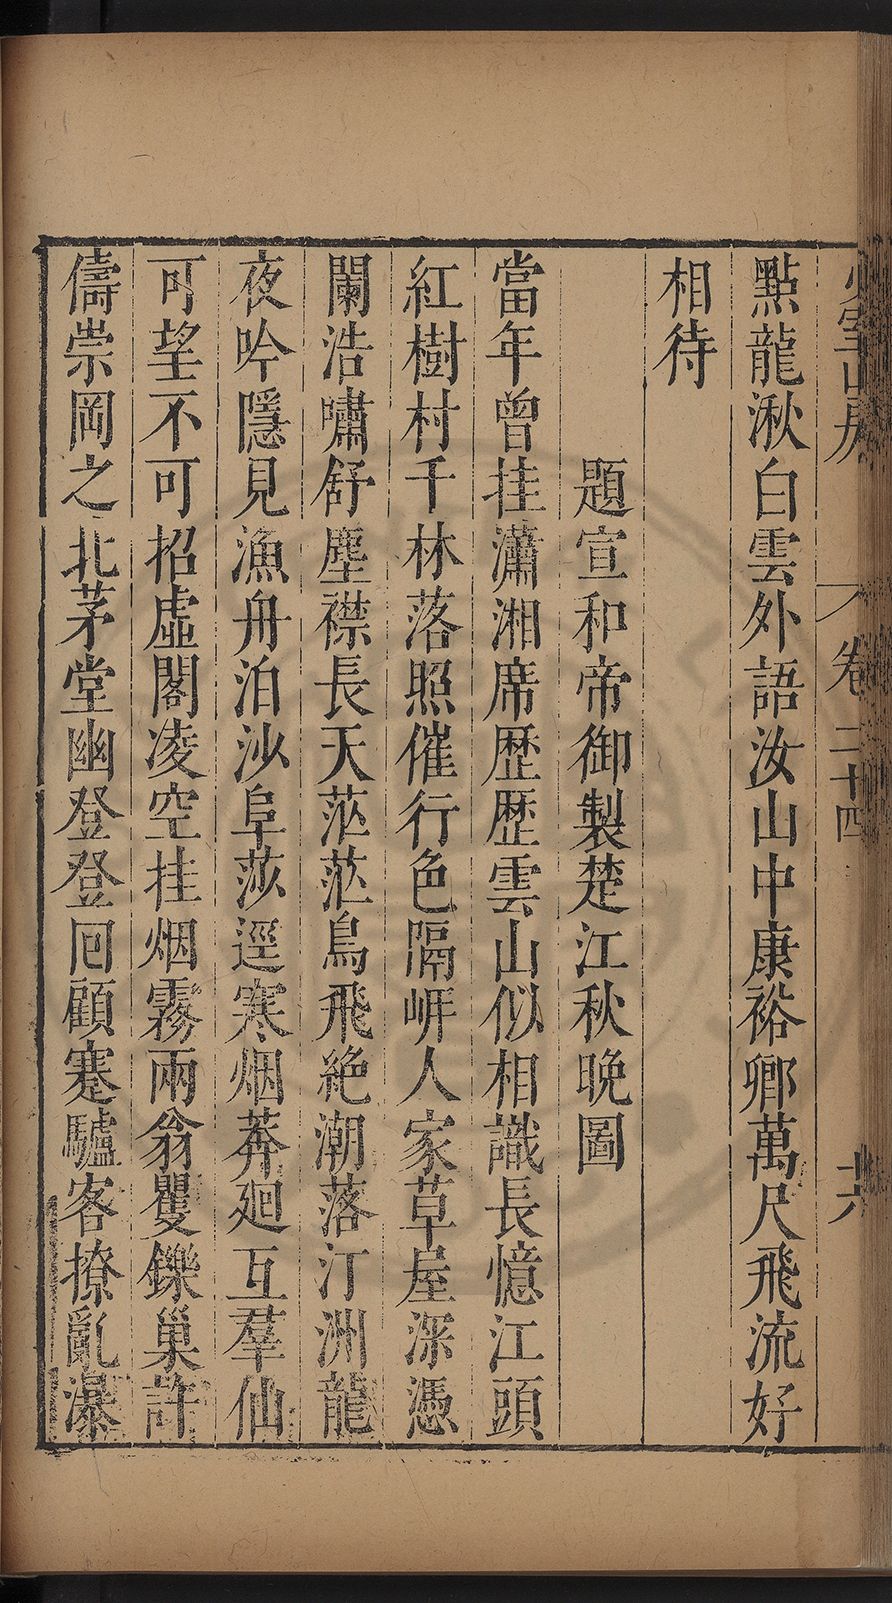 少室山房 卷二十四 十六
點龍湫白雲外語汝山中康裕卿萬尺飛流好
相待
題宣和帝御製楚江秋晚圖
當年曾挂瀟湘席歷歷雲山似相識長憶江頭
紅樹村千林落照催行色隔岍人家草屋深憑
闌浩嘯舒塵襟長天茫茫鳥飛絶潮落汀洲龍
夜吟隱見漁舟泊沙阜莎逕寒烟莽廻互羣仙
可望不可招虛閣凌空挂烟霧兩翁矍鑠巢許
儔崇岡之北茅堂幽登登囘顧蹇驢客撩亂瀑